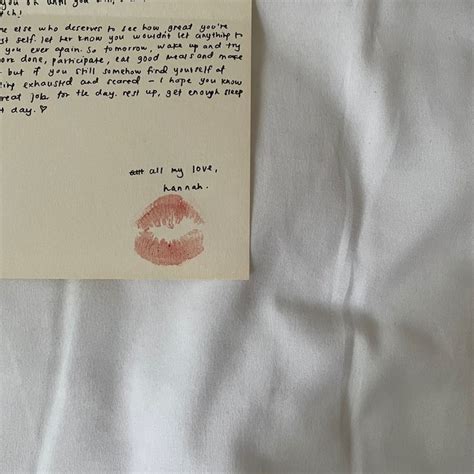 you
me else who deserves to see how great you're
st self. let her know you wouldn't let anything to
you ever again. so tomorrow, wake up and try
ore done, participate, eat good meals and make
but if you still somehow find yourself at
exhausted and scared - i hope you know
reat job for the day. rest up, get enough sleep
t day. ♡
all my love,
hannah.